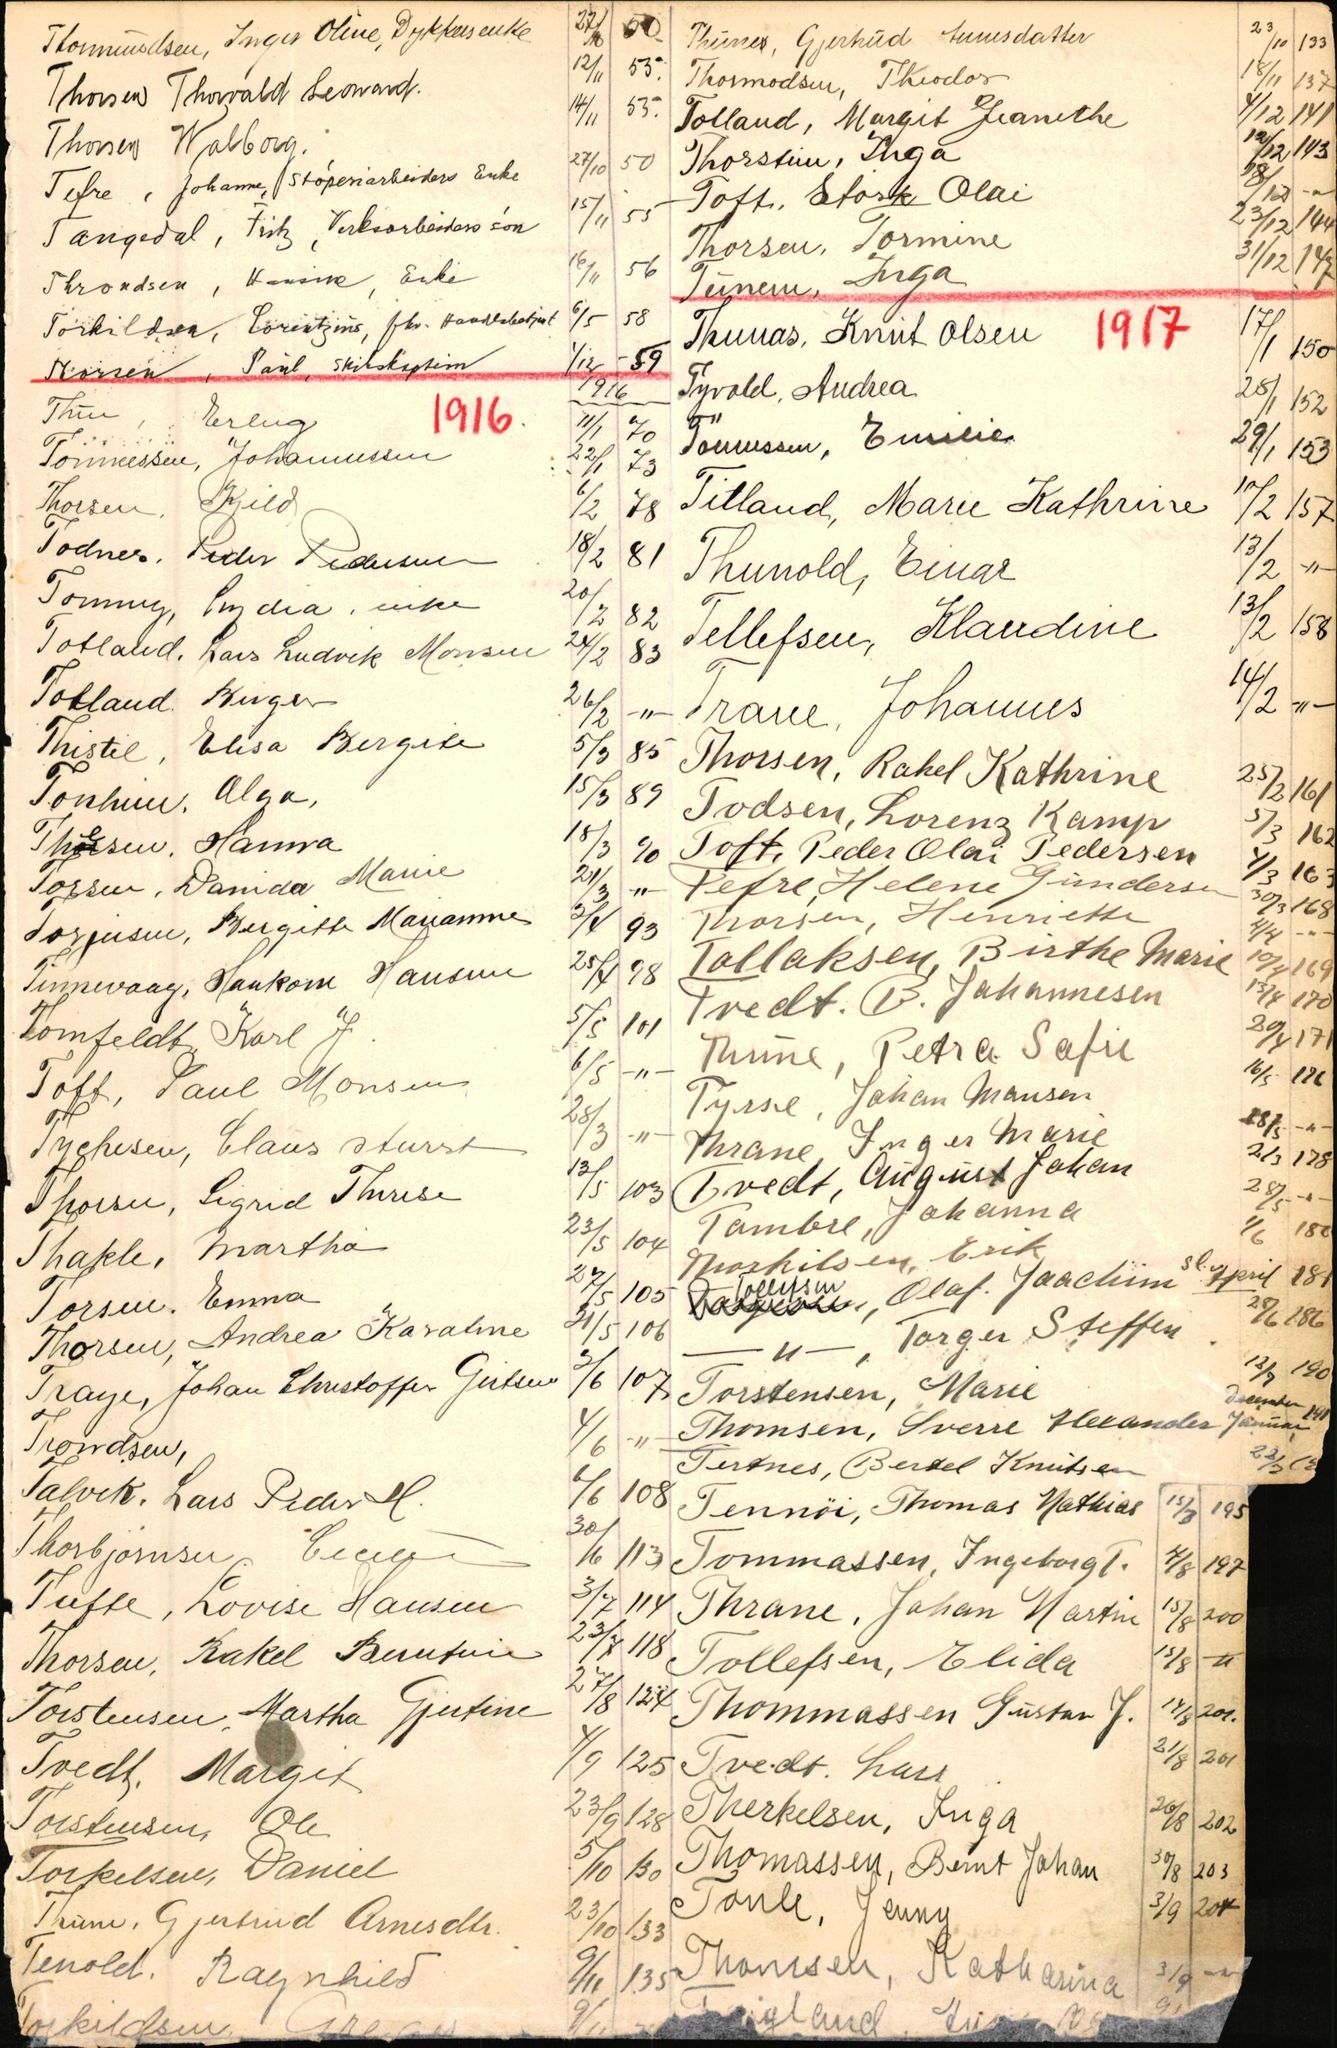 Thormundsen, Inger Oline, Dykkersenke 27/10 50
Thorsen Thorvald Leonard. 12/11 55.
Thorsen Walborg. 14/11 55.
Tefre, Johanne, Støperiarbeiders Enke 27/10 50
Tangedal, Fritz, Verksarbeiders søn 15/11 55
Throndsen, Hansine, Enke 16/11 56
Torkildsen, Lorentzine, fhv. 6/5 58
Thorsen, Paul, Skibskaptein 1/12 59
1916
1916.
Thue, Erling 11/1 70
Tönnessen, Johannessen 22/1 73
Thorsen, Kild 6/2 78
Todnes, Peder Pedersen 18/2 81
Tommy, Lydia, enke 20/2 82
Totland, Lars Ludvik Monsen 24/2 83
Totland Birger 26/2 -"-
Thistel, Elisa Bergite 5/3 85
Tonheim, Olga, 15/3 89
Thoresen, Hanna 18/3 90
Torsen, Danida Marie 21/3 "
Torjusen, Bergitte Marianne 2/4 93
Tinnevaag, Haakon Hansen 25/4 98
Tomfeldt, Karl J. 5/5 101
Toft, Paul Monsen 6/5 -"-
Tychesen, Claus Sturst 28/3 -"-
Thorsen, Sigrid Therese 13/5 103
Thakle, Martha 23/5 104
Torsen, Emma 27/5 105
Thorsen, Andrea Karoline 31/5 106
Traye, Johan Christoffer Giertsen 2/6 107
Trondsen, 4/6 -"-
Talvik, Lars Peder M. 6/6 108
Thorbjørnsen 30/6 113
Tufte, Lovise Hansen 3/7 114
Thorsen, Rakel Berntine 23/7 118
Torstensen, Martha Gjertine 27/8 124
Tvedt, Margit 4/9 125
Torstensen, Ole 23/9 128
Torkelsen, Daniel 5/10 130
Thune, Gjertrud Arnesdtr. 23/10 133
Tenold, Ragnhild 9/11 135
Torkildsen 9/11
Thunes, Gjertrud Arnesdatter 23/10 133
Thormodsen, Theodor 18/11 137
Totland, Margit Jeanethe 4/12 141
Thorstein, Inga 12/12 143
Toft, Stork Olai 18/12 -"-
Thorsen, Tormine 23/12 144
Tunem, Inga 31/12 147
1917
Thunas, Knut Olsen 17/1 150
Tyvold, Andrea 28/1 152
Tönnessen, Emilie 29/1 153
Titland, Marie Kathrine 10/2 157
Thunold, Einar 13/2 -"-
Tellefsen, Klaudine 13/2 158
Trane, Johannes 14/2 -"-
Thorsen, Rakel Kathrine 25/2 161
Todsen, Lorenz Kamp 5/3 162
Toft, Peder Olai Pedersen 4/3 163
Tefre, Helene Gundersen 30/3 168
Thorsen, Henriette 4/4 -"-
Tollaksen, Birthe Marie 10/4 169
Tvedt, B. Johannesen 13/4 170
Thune, Petra Sofie 20/4 171
Tyrse, Johan Mansen 16/5 176
Thrane, Inger Marie 28/5 -"-
Tvedt, August Johan 2/3 178
Tambre, Johanna 28/5 -"-
Thorkilsen, Erik 1/6 180
Tollefsen, Olaf Joachim sl. April 181
-"-, Torger Steffen 28/6 186
Torstensen, Marie 12/7 190
Thomsen, Sverre Alexander December Januar 191
Tertnes, Bertel Knutsen 22/3
Tennöi, Thomas Mathias 15/3 195
Tommassen, Ingeborg T. 4/8 197
Thrane, Johan Martin 15/8 200
Tollefsen, Elida 15/8 -"-
Thommassen Gustav J. 14/8 201.
Tvedt, Lars 21/8 201
Therkelsen, Inga 26/8 202
Thomassen, Bernt Johan 30/8 203
Tonle, Jenny 3/9 204
Thomsen, Katharina 3/9 -"-